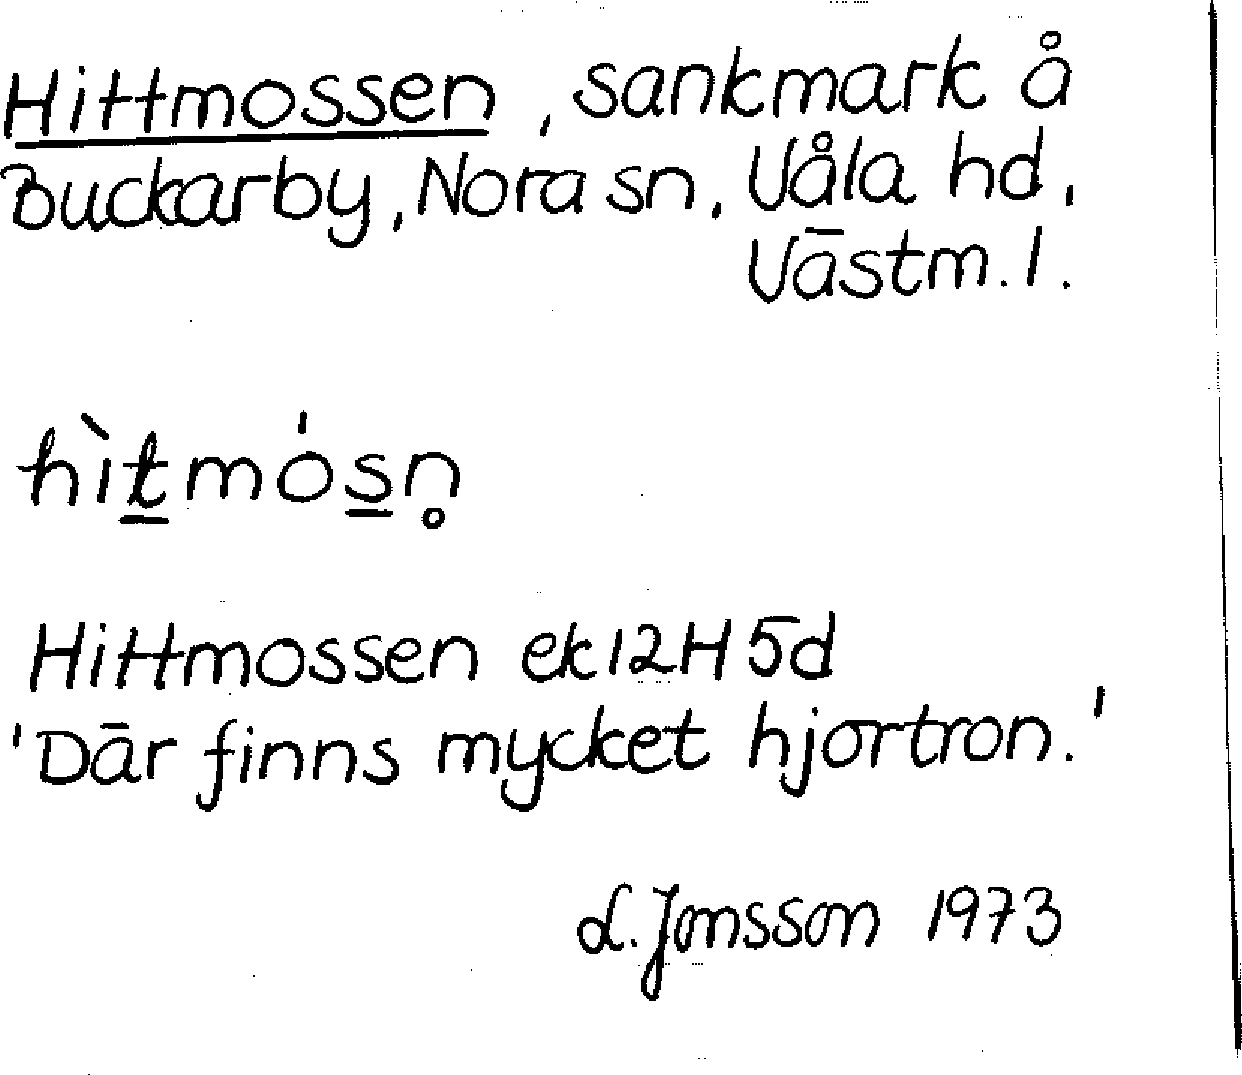 Hittmossen, sankmark å
Buckarby, Nora sn, Våla hd,
Västm. l.
hìt̲mós̲n̥
Hittmossen ek 12H 5d
'Där finns mycket hjortron.'
L. Jonsson 1973